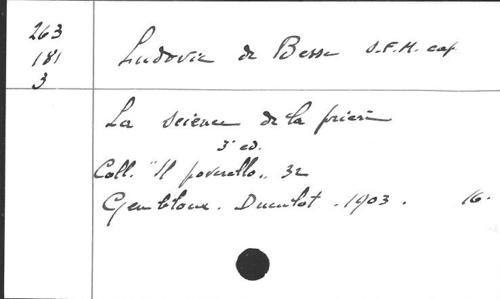 263
181
3
Ludovic de Besse O.F.M. cap
La science de la prière
3e ed.
Coll. "Il poverello" 32
Gembloux. Duculot. 1903. 16.